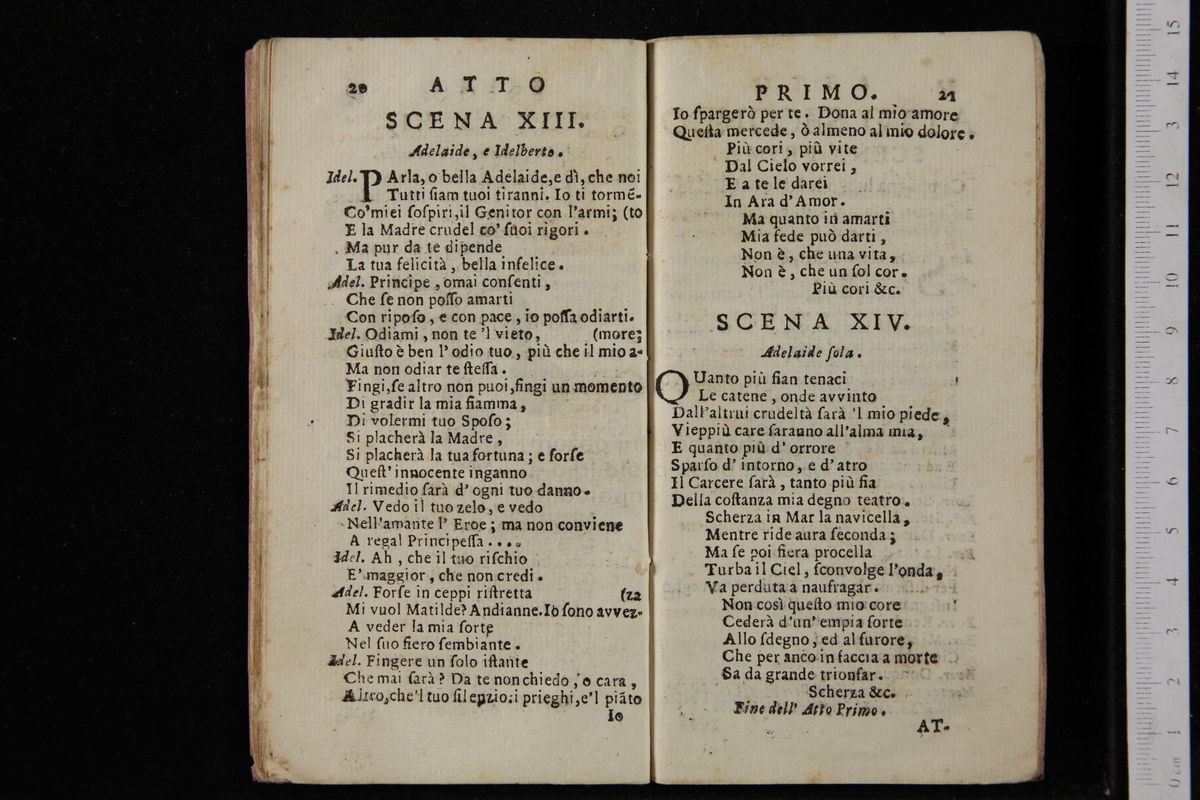 20 ATTO
SCENA XIII.
Adelaide, e Idelberto.
Idel. PArla, o bella Adelaide, e dì, che noi
Tutti ſiam tuoi tiranni. Io ti tormẽ-
Co'miei ſoſpiri, il Genitor con l'armi; (to
E la Madre crudel co' ſuoi rigori.
Ma pur da te dipende
La tua felicità, bella infelice.
Adel. Principe, omai conſenti,
Che ſe non poſſo amarti
Con ripoſo, e con pace, io poſſa odiarti.
Idel. Odiami, non te 'l vieto, (more;
Giuſto è ben l' odio tuo, più che il mio a-
Ma non odiar te ſteſſa.
Fingi, ſe altro non puoi, fingi un momento
Di gradir la mia fiamma,
Di volermi tuo Spoſo;
Si placherà la Madre,
Si placherà la tua fortuna; e forſe
Queſt' innocente inganno
Il rimedio ſarà d' ogni tuo danno.
Adel. Vedo il tuo zelo, e vedo
Nell'amante l' Eroe; ma non conviene
A regal Principeſſa....
Idel. Ah, che il tuo riſchio
E' maggior, che non credi.
Adel. Forſe in ceppi riſtretta (za
Mi vuol Matilde? Andianne. Io ſono avvez-
A veder la mia ſorte
Nel ſuo fiero ſembiante.
Idel. Fingere un ſolo iſtante
Che mai ſarà? Da te non chiedo, o cara,
Altro, che'l tuo ſilenzio; i prieghi, e'l piãto
Io
PRIMO. 21
Io ſpargerò per te. Dona al mio amore
Queſta mercede, ò almeno al mio dolore.
Più cori, più vite
Dal Cielo vorrei,
E a te le darei
In Ara d' Amor.
Ma quanto in amarti
Mia fede può darti,
Non è, che una vita,
Non è, che un ſol cor.
Più cori &c.
SCENA XIV.
Adelaide ſola.
QUanto più ſian tenaci
Le catene, onde avvinto
Dall'altrui crudeltà ſarà 'l mio piede,
Vieppiù care ſaranno all'alma mia,
E quanto più d' orrore
Sparſo d' intorno, e d' atro
Il Carcere ſarà, tanto più ſia
Della coſtanza mia degno teatro.
Scherza in Mar la navicella,
Mentre ride aura ſeconda;
Ma ſe poi fiera procella
Turba il Ciel, ſconvolge l'onda,
Va perduta a naufragar.
Non così queſto mio core
Cederà d'un' empia ſorte
Allo ſdegno, ed al furore,
Che per anco in faccia a morte
Sa da grande trionfar.
Scherza &c.
Fine dell' Atto Primo.
AT-